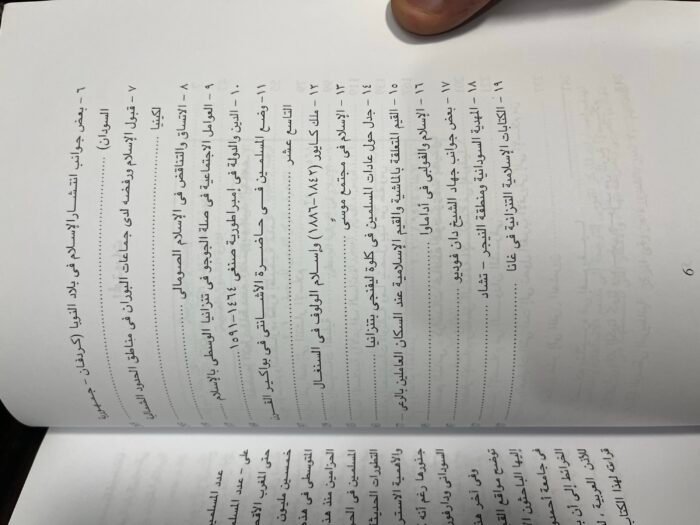 ٦ - بعض جوانب انتشار الإسلام فى بلاد النوبا (كردفان - جمهورية
السودان)
٧ - قبول الإسلام ورفضه لدى جماعات البوران فى مناطق الحدود الشمالية
لكينيا
٨ - الاتساق والتناقض فى الإسلام الصومالى
٩ - العوامل الاجتماعية فى صلة الجوجو فى تنزانيا الوسطى بالإسلام
١٠ - الدين والدولة فى إمبراطورية صنغى ١٤٦٤-١٥٩١
١١ - وضع المسلمين فى حاضرة الأشانتى فى بواكير القرن
التاسع عشر
١٢ - ملك كايور (١٨٤٢-١٨٨٦) وإسلام الولوف فى السنغال
١٣ - الإسلام فى مجتمع موسى
١٤ - جدل حول عادات المسلمين فى كلوة ليفنجى بتنزانيا
١٥ - القيم المتعلقة بالماشية والقيم الإسلامية عند السكان العاملين بالرعى
١٦ - الإسلام والفولبى فى أداماوا
١٧ - بعض جوانب جهاد الشيخ دان فوديو
١٨ - المهدية السودانية ومنطقة النيجر - تشاد
١٩ - الكتابات الإسلامية التنزانية فى غانا
6
عدد المسلمين
على - عدد المسلم
حتى المغرب الأقصى
خمسين مليون
الحزامين منذ هذ
المتوسطى فى هذه
المسلمين فى الحز
التطورات الحديثة
والأهمية الاستر
جذورها رغم أنه
السودانى ودارفور
وفى آخر هذ
توضح مواقع القب
إليها الباحثون ا
فى جامعة أحمدو
الخرائط إلى أن ب
للأذن العربية ،
قراءته لهذا الكتاب